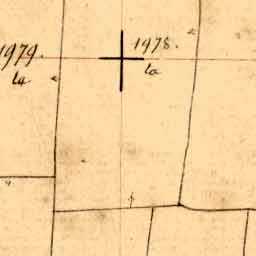 1979.
la
1978.
la